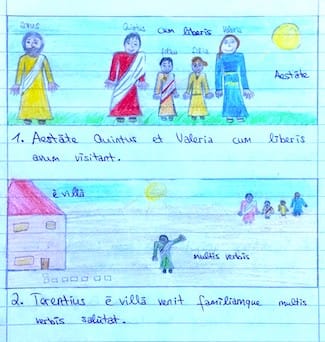 avus
Quintus cum liberis Valeria
filius filia
Aestāte
1. Aestāte Quintus et Valeria cum liberis
avum visitant.
ē villā
multis verbis
2. Terentius ē villā venit familiamque multis
verbis salutat.